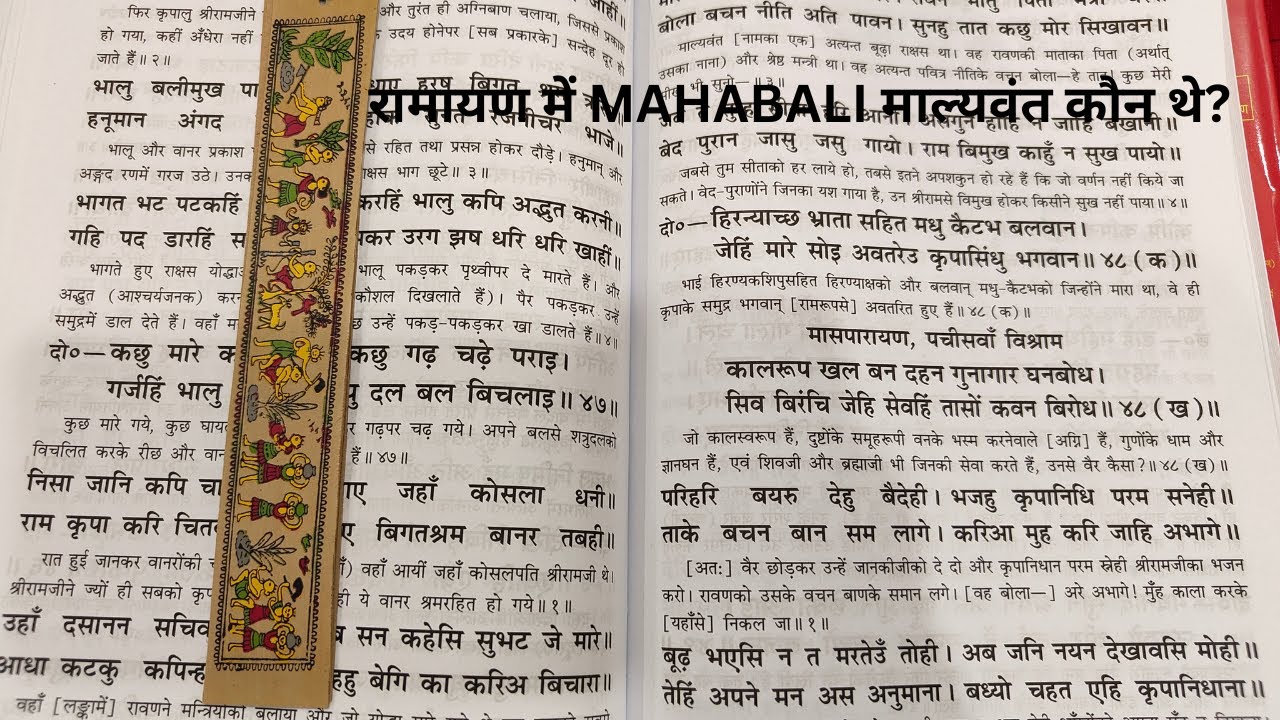 फिर कृपालु श्रीरामजीने और तुरंत ही अग्निबाण चलाया, जिससे प्रकाश
हो गया, कहीं अँधेरा नहीं के उदय होनेपर [सब प्रकारके] सन्देह दूर हो
जाते हैं॥ २॥
भालु बलीमुख
हनूमान अंगद भाजे॥
भालू और वानर प्रकाश से रहित तथा प्रसन्न होकर दौड़े। हनुमान् और
अङ्गद रणमें गरज उठे। भाग छूटे॥ ३॥
भागत भट पटकहिं करहिं भालु कपि अद्भुत करनी॥
गहि पद डारहिं उरग झष धरि धरि खाहीं॥
भागते हुए राक्षस भालू पकड़कर पृथ्वीपर दे मारते हैं। और
अद्भुत (आश्चर्यजनक) कौशल दिखलाते हैं)। पैर पकड़कर उन्हें
समुद्रमें डाल देते हैं। वहाँ उन्हें पकड़-पकड़कर खा डालते हैं॥ ४॥
दो०—कछु मारे कछु गढ़ चढ़े पराइ।
गर्जहिं भालु दल बल बिचलाइ॥ ४७॥
कुछ मारे गये, कुछ गढ़पर चढ़ गये। अपने बलसे शत्रुदलको
विचलित करके रीछ और हैं॥ ४७॥
निसा जानि कपि जहाँ कोसला धनी॥
राम कृपा करि बिगतश्रम बानर तबही॥
रात हुई जानकर वानरोंकी वहाँ आयीं जहाँ कोसलपति श्रीरामजी थे।
श्रीरामजीने ज्यों ही सबको ही ये वानर श्रमरहित हो गये॥ १॥
उहाँ दसानन सचिव सन कहेसि सुभट जे मारे॥
आधा कटकु कपिन्ह बेगि का करिअ बिचारा॥
वहाँ [लङ्कामें] रावणने मन्त्रियोंको बुलाया और
रामायण में MAHABALI माल्यवंत कौन थे?
बोला बचन नीति अति पावन। सुनहु तात कछु मोर सिखावन॥
माल्यवंत [नामका एक] अत्यन्त बूढ़ा राक्षस था। वह रावणकी माताका पिता (अर्थात्
उसका नाना) और श्रेष्ठ मन्त्री था। वह अत्यन्त पवित्र नीतिके वचन बोला—हे तात! कुछ मेरी
असगुन होहिं न जाहिं बखानी॥
बेद पुरान जासु जसु गायो। राम बिमुख काहुँ न सुख पायो॥
जबसे तुम सीताको हर लाये हो, तबसे इतने अपशकुन हो रहे हैं कि जो वर्णन नहीं किये जा
सकते। वेद-पुराणोंने जिनका यश गाया है, उन श्रीरामसे विमुख होकर किसीने सुख नहीं पाया॥ ४॥
दो०—हिरन्याच्छ भ्राता सहित मधु कैटभ बलवान।
जेहिं मारे सोइ अवतरेउ कृपासिंधु भगवान॥ ४८ (क)॥
भाई हिरण्यकशिपुसहित हिरण्याक्षको और बलवान् मधु-कैटभको जिन्होंने मारा था, वे ही
कृपाके समुद्र भगवान् [रामरूपसे] अवतरित हुए हैं॥ ४८ (क)॥
मासपारायण, पचीसवाँ विश्राम
कालरूप खल बन दहन गुनागार घनबोध।
सिव बिरंचि जेहि सेवहिं तासों कवन बिरोध॥ ४८ (ख)॥
जो कालस्वरूप हैं, दुष्टोंके समूहरूपी वनके भस्म करनेवाले [अग्नि] हैं, गुणोंके धाम और
ज्ञानघन हैं, एवं शिवजी और ब्रह्माजी भी जिनकी सेवा करते हैं, उनसे वैर कैसा?॥ ४८ (ख)॥
परिहरि बयरु देहु बैदेही। भजहु कृपानिधि परम सनेही॥
ताके बचन बान सम लागे। करिआ मुह करि जाहि अभागे॥
[अतः] वैर छोड़कर उन्हें जानकीजीको दे दो और कृपानिधान परम स्नेही श्रीरामजीका भजन
करो। रावणको उसके वचन बाणके समान लगे। [वह बोला—] अरे अभागे! मुँह काला करके
[यहाँसे] निकल जा॥ १॥
बूढ़ भएसि न त मरतेउँ तोही। अब जनि नयन देखावसि मोही॥
तेहिं अपने मन अस अनुमाना। बध्यो चहत एहि कृपानिधाना॥